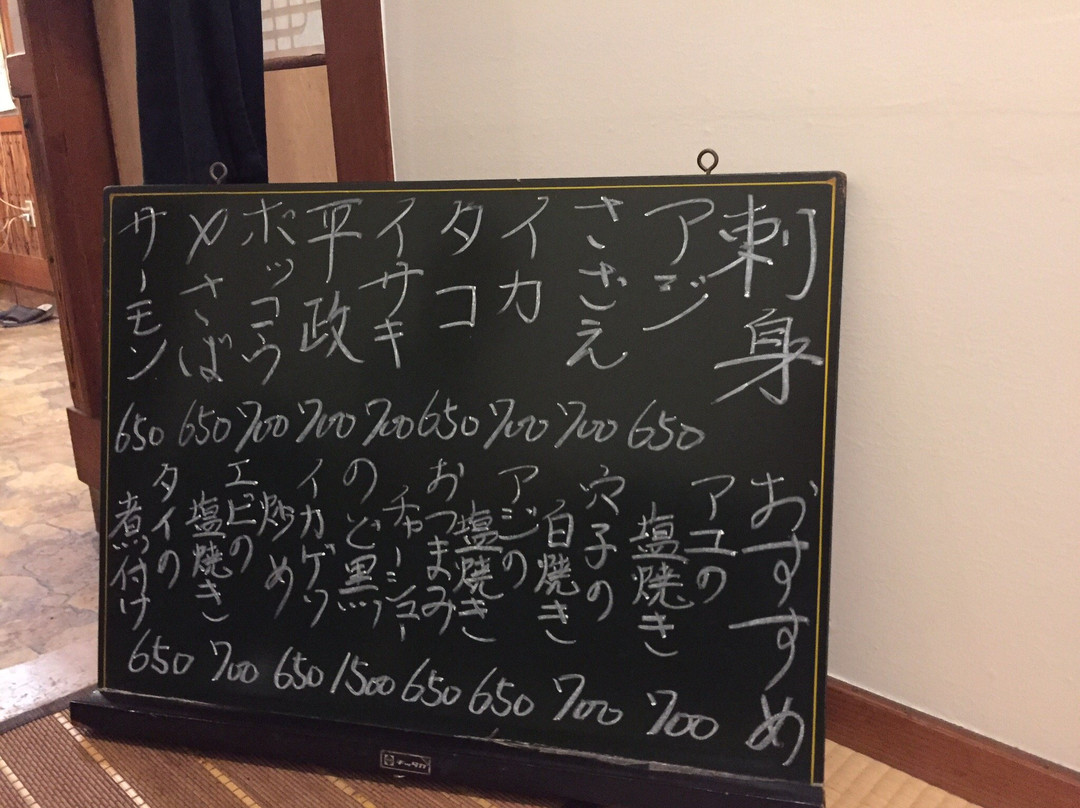 刺身
アジ 650
さざえ 700
イカ 700
タコ 650
イサキ 700
平政 700
ホッコウ 700
〆さば 650
サーモン 650
おすすめ
アユの
塩焼き 700
穴子の
白焼き 700
アジの
塩焼き 650
おつまみ
チャーシュー 650
のど黒 1500
イカゲソ
炒め 650
エビの
塩焼き 700
タイの
煮付け 650